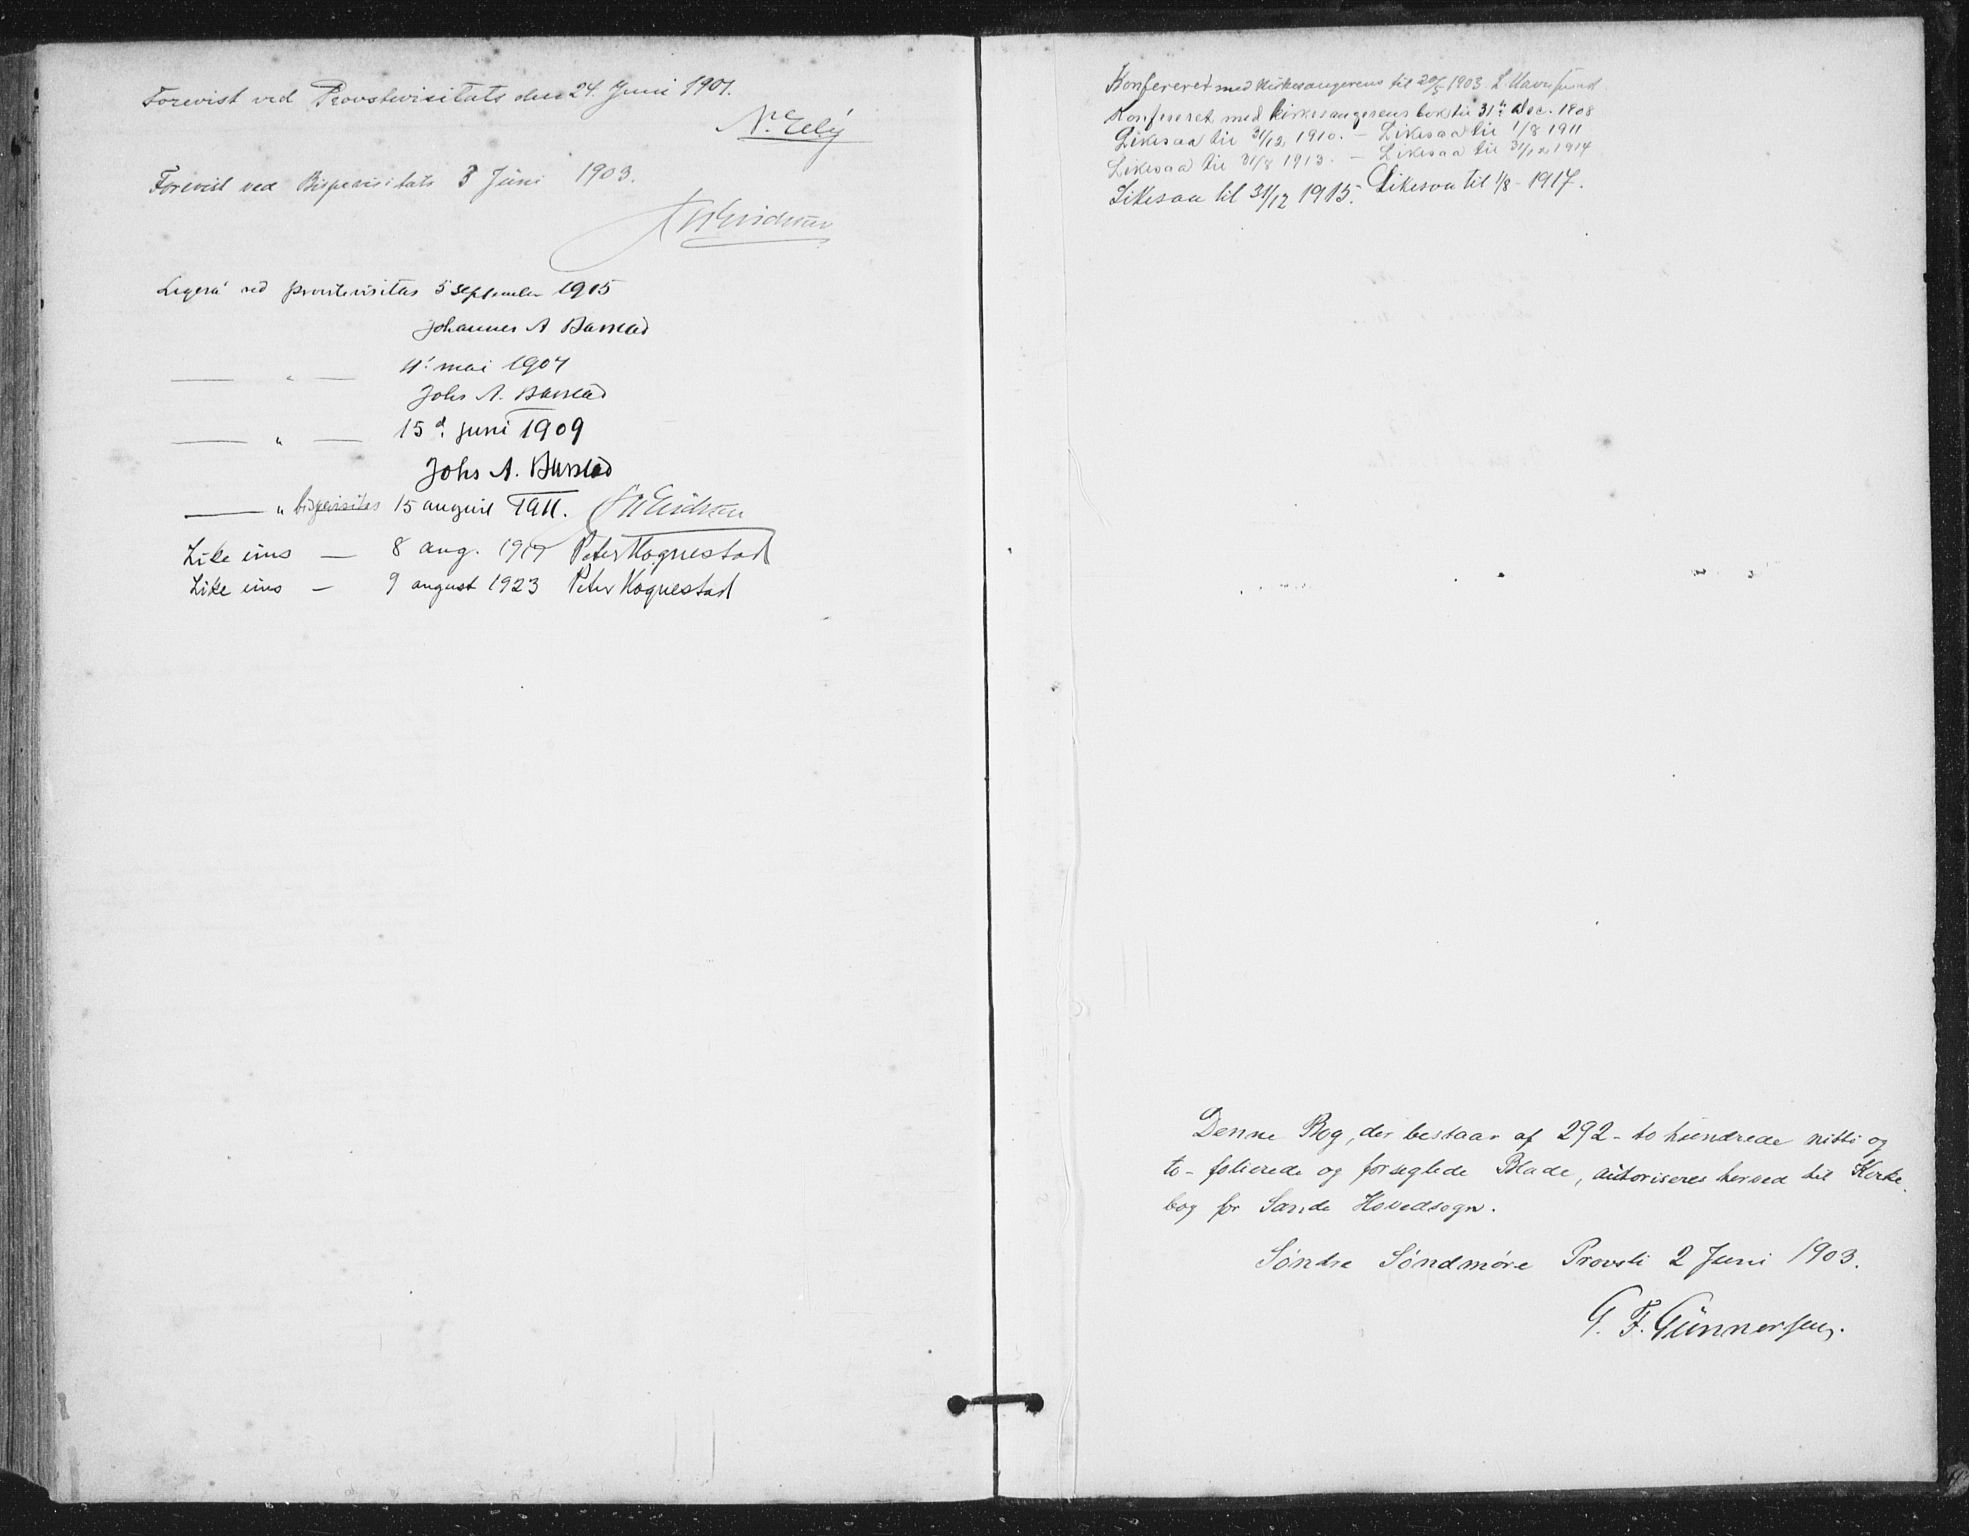 Forevist ved Provstevisitats den 24. Juni 1901.
Forevist ved Bispevisitats 3 Juni 1903.
Ligeså ved prostevisitas 5 september 1905
Johannes A Barstad
— " — 11' mai 1907
Johs A. Barstad
— " — 15d. juni 1909
Johs A. Barstad
— " bispevisitas 15 august 1911.
Like eins — 8 aug. 1917 Peter Hognestad
Like eins — 9 august 1923 Peter Hognestad
Konfereret med Kirkesangerens til 20/5 1903.
Konfereret med kirkesangerens bok til 31te Dec. 1908
Likesaa til 31/12 1910. – Likesaa til 1/8 1911
Likesaa til 31/8 1913. – Likesaa til 31/12 1914
Likesaa til 31/12 1915. Likesaa til 1/8 - 1917.
Denne Bog, der bestaar af 292 - to hundrede nitti og
to - folierede og forseglede Blade, autoriseres herved til Kirke-
bog for Sande Hovedsogn.
Søndre Søndmøre Provsti 2 Juni 1903.
G. F. Gunnersen.